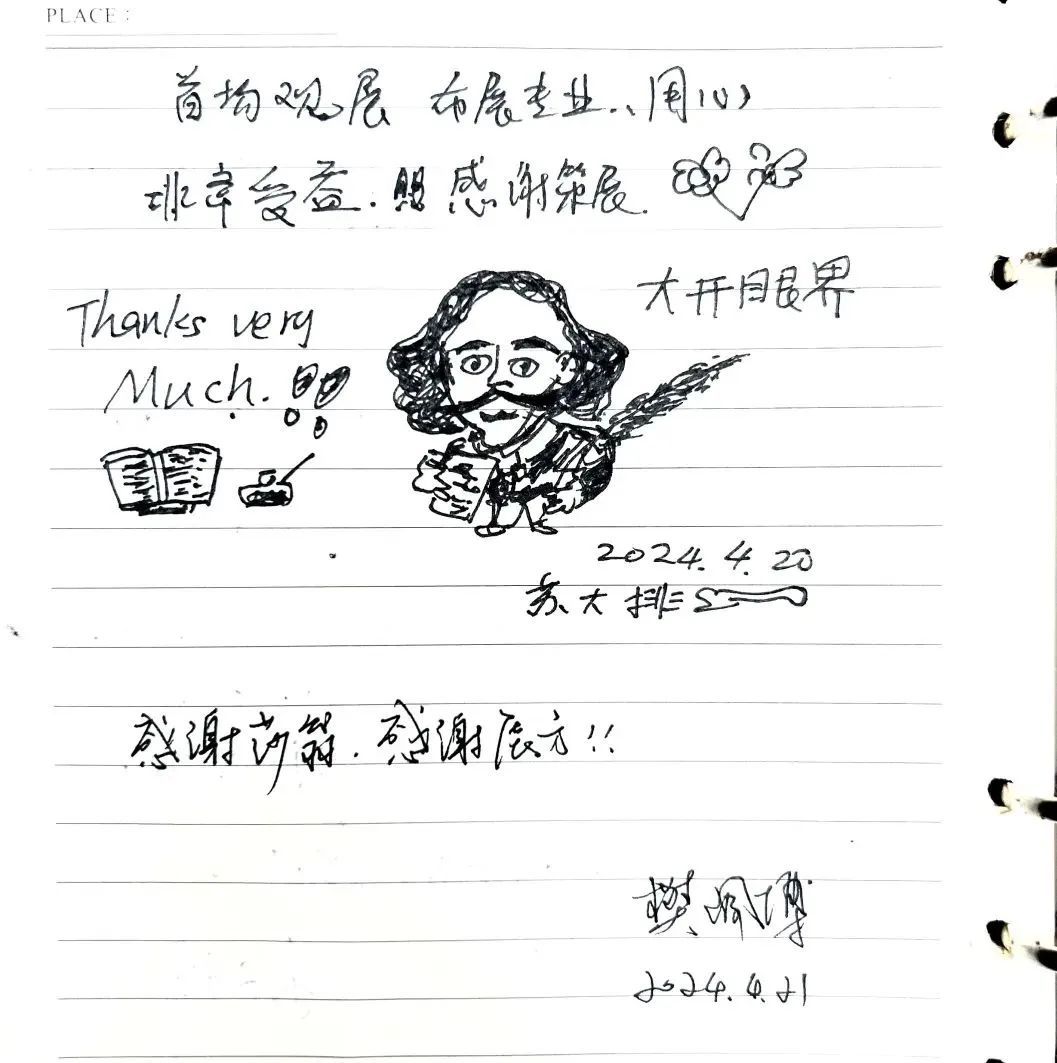 PLACE:
首场观展 布展专业、用心
非常受益. 感谢策展.
大开眼界
Thanks very
Much.
2024.4.20
苏大排
感谢莎翁. 感谢展方!!
樊佩博
2024.4.21